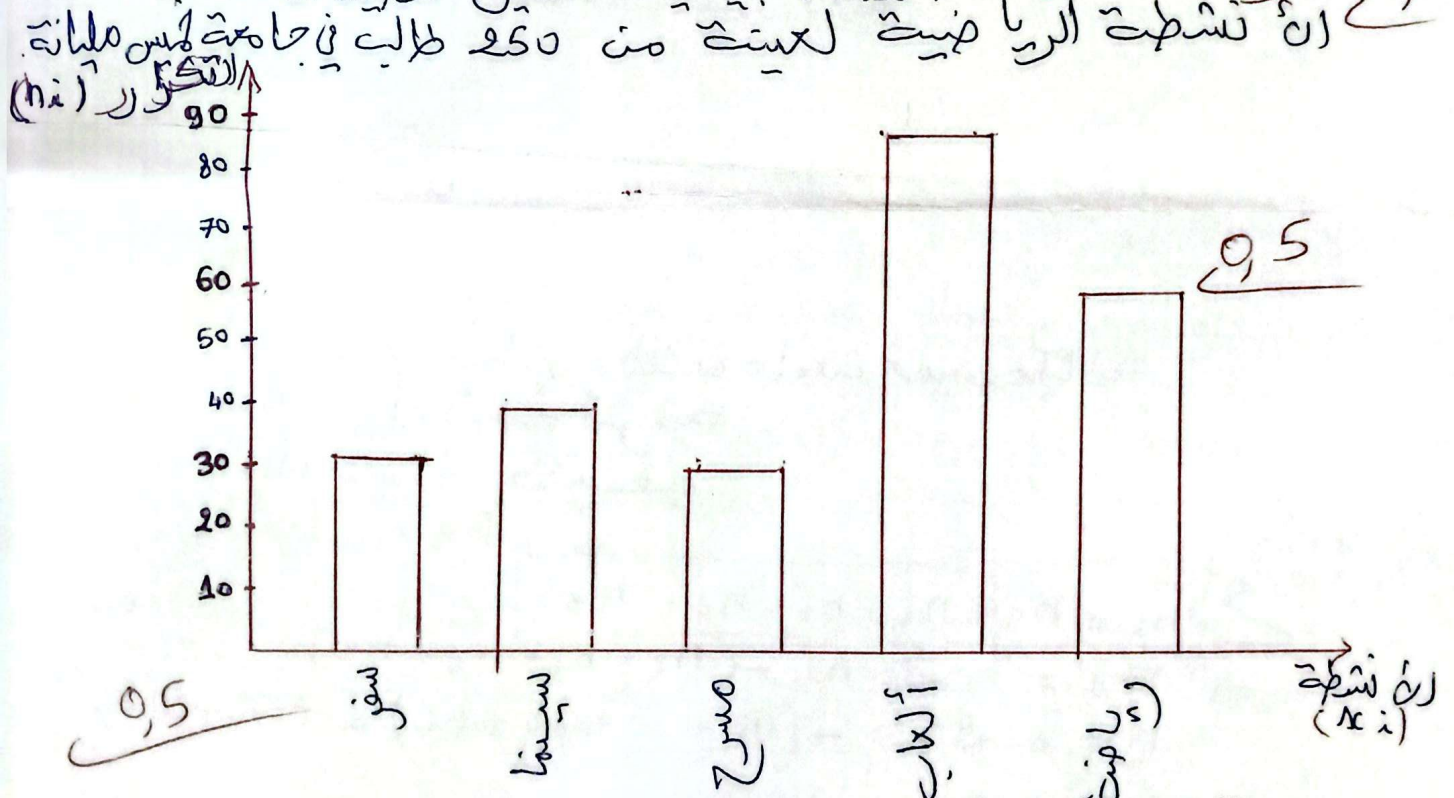 الأنشطة الرياضية لعينة من 250 طالب في جامعة خميس مليانة.
التكرار (ni)
90
80
70
60
50
40
30
20
10
0,5
0,5
سفر
سينما
مسرح
ألعاب
رياضة
الأنشطة
(xi)